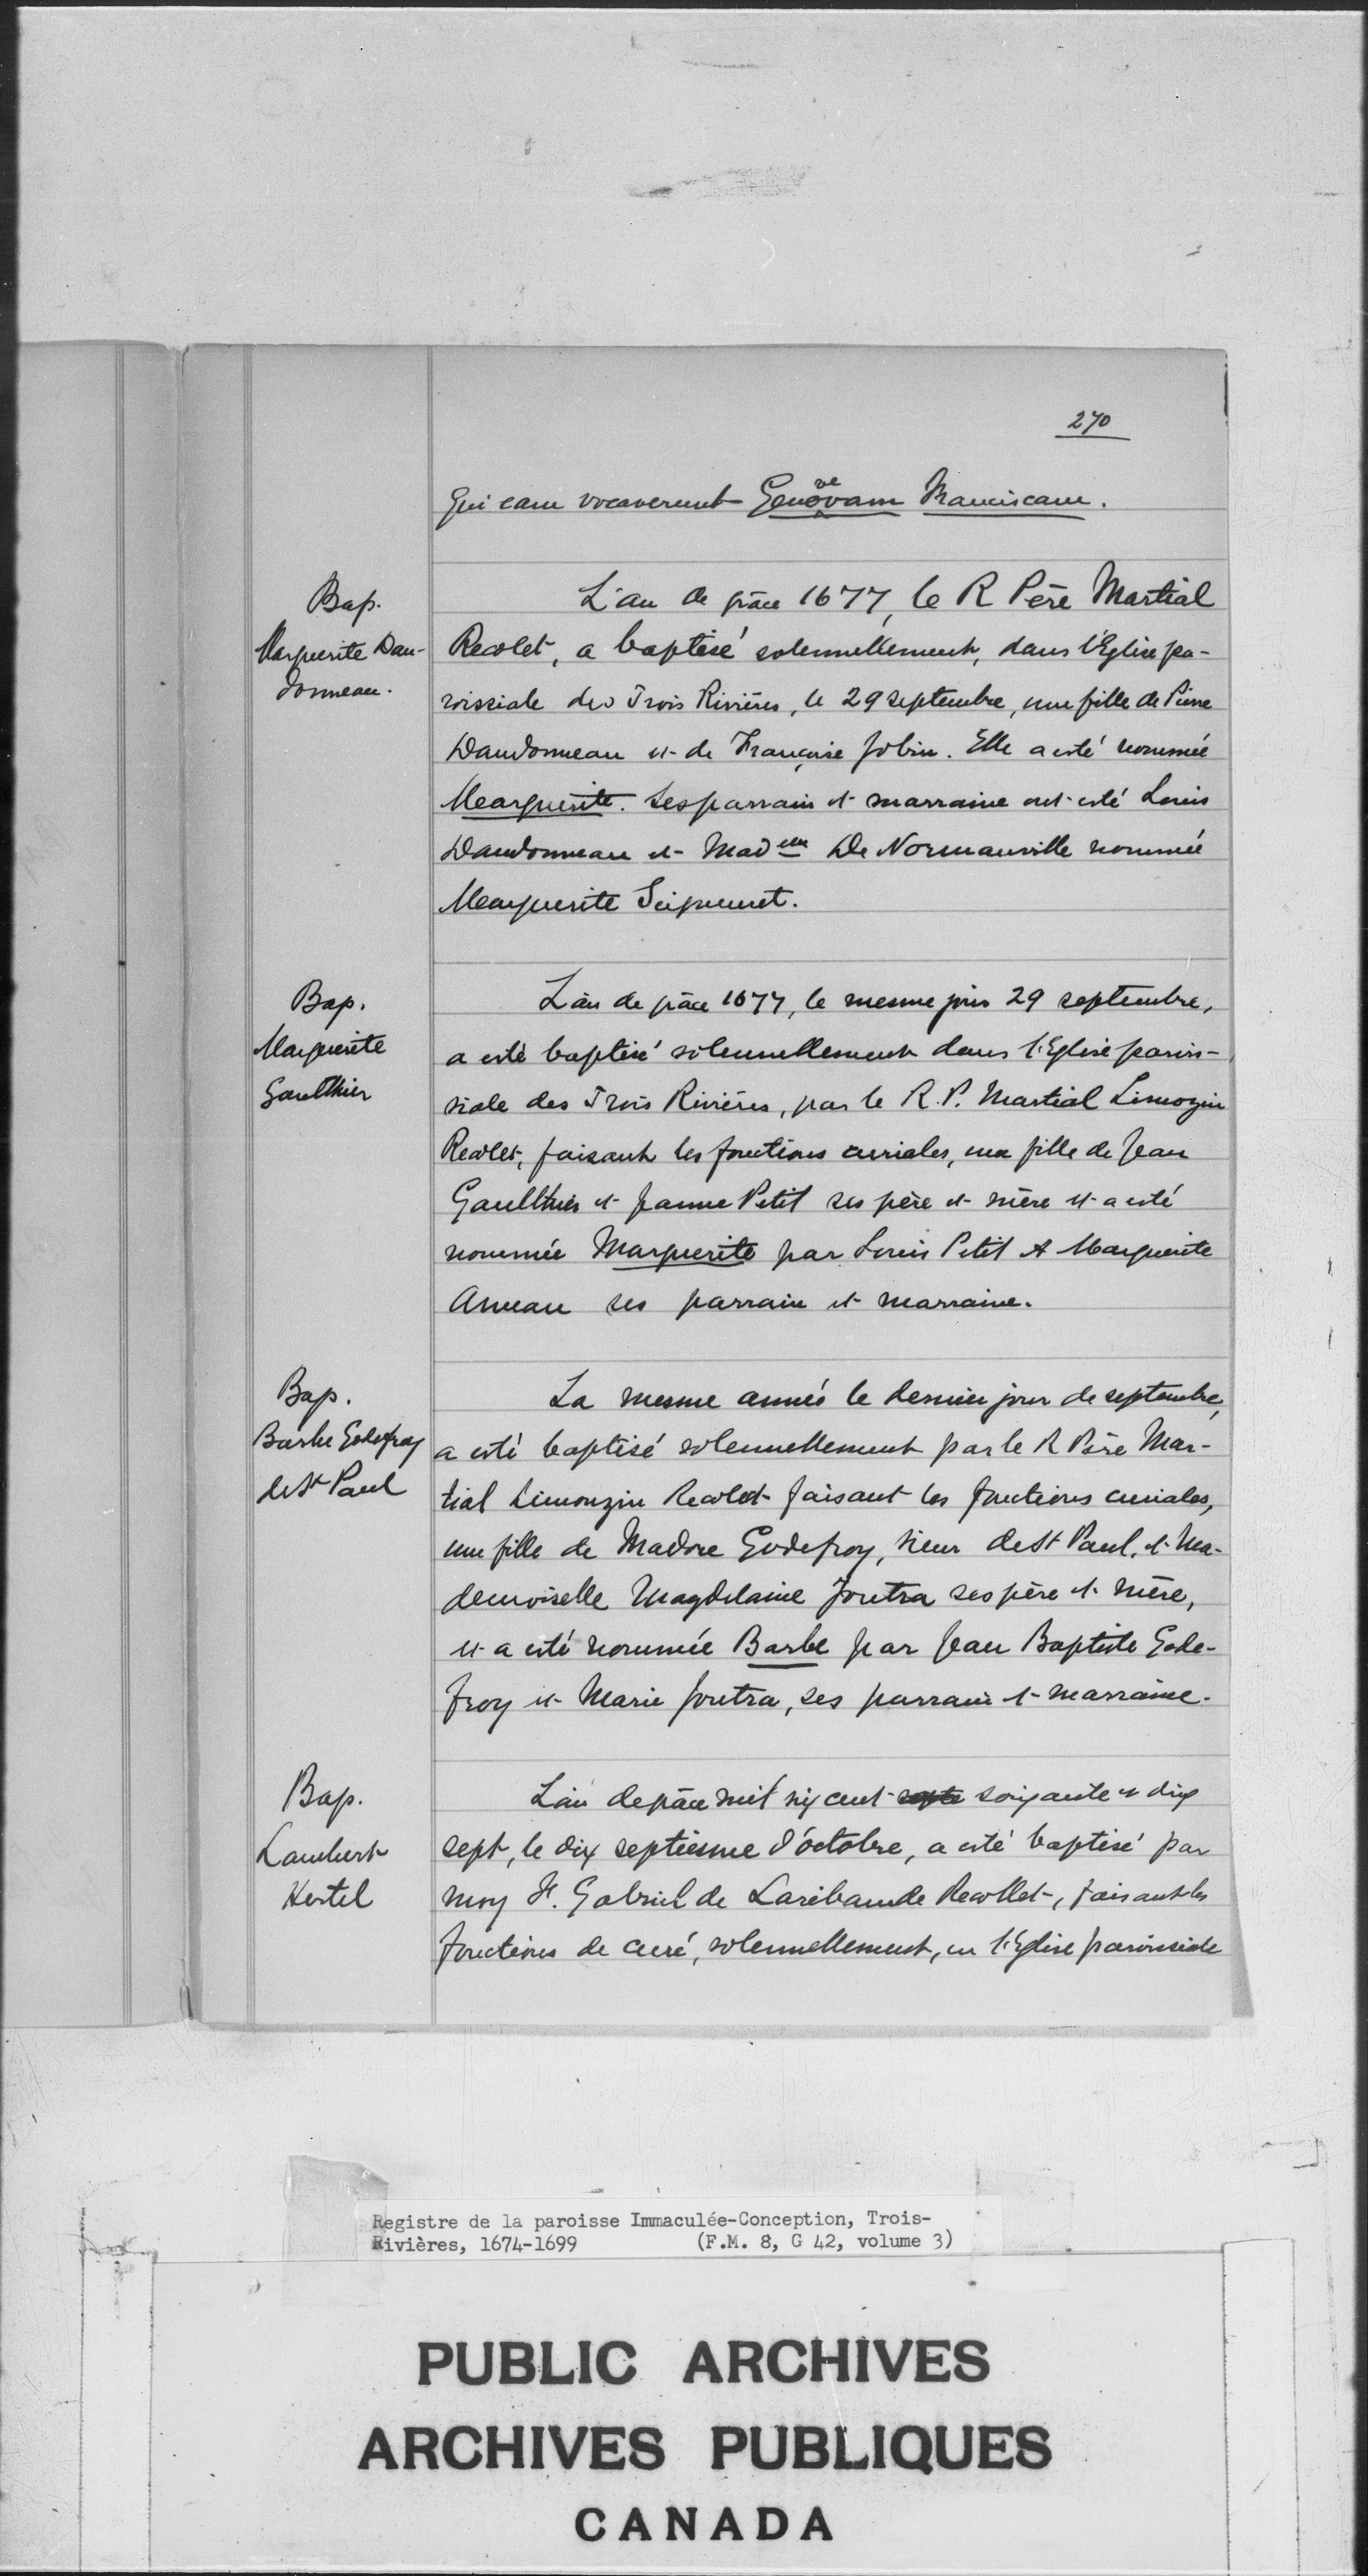 270
Qui eam vocaverunt Genovevam Franciscam.
Bap.
Marguerite Dan-
donneau.
L'an de grâce 1677, le R Père Martial
Recolet, a baptisé solennellement, dans l'Eglise pa-
roissiale des Trois Rivières, le 29 septembre, une fille de Pierre
Dandonneau et de Françoise Jobin. Elle a esté nommée
Marguerite. Ses parrain et marraine ont esté Louis
Dandonneau et Madelle De Normanville nommée
Marguerite Seigneuret.
Bap.
Marguerite
Gaulthier
L'an de grâce 1677, le mesme jour 29 septembre,
a esté baptisé solennellement dans l'Eglise parois-
siale des Trois Rivières, par le R. P. Martial Limozin
Recolet, faisant les fonctions curiales, une fille de Jean
Gaulthier et Jeanne Petit ses père et mère et a esté
nommée Marguerite par Louis Petit et Marguerite
Aneau ses parrain et marraine.
Bap.
Barbe Godefroy
de St Paul
La mesme année le dernier jour de septembre,
a esté baptisé solennellement par le R Père Mar-
tial Limouzin Recolet faisant les fonctions curiales,
une fille de Madore Godefroy, sieur de St Paul, et Ma-
demoiselle Magdelaine Joutra ses père et mère,
et a esté nommée Barbe par Jean Baptiste Gode-
froy et Marie Joutra, ses parrain et marraine.
Bap.
Lambert
Hertel
L'an de grâce mil six cent septe soixante et dix
sept, le dix septiesme d'octobre, a esté baptisé par
moy F. Gabriel de Laribaude Recollet, faisant les
fonctions de curé, solennellement, en l'Eglise paroissiale
Registre de la paroisse Immaculée-Conception, Trois-
Rivières, 1674-1699 (F.M. 8, G 42, volume 3)
PUBLIC ARCHIVES
ARCHIVES PUBLIQUES
CANADA